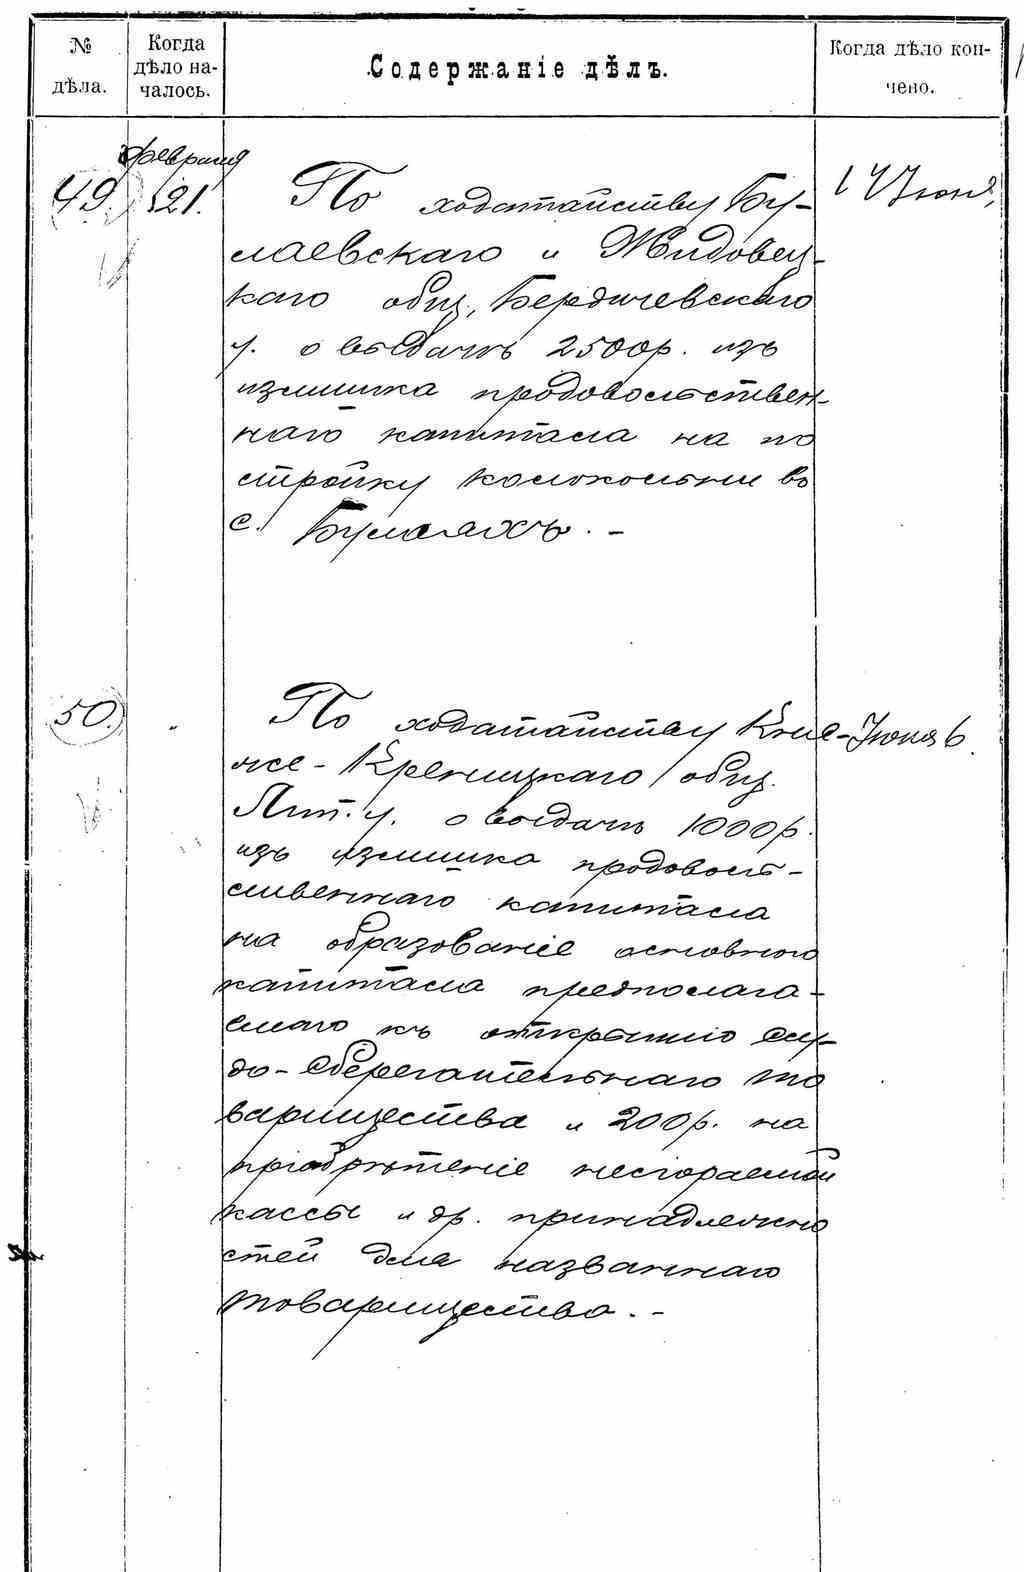 № дѣла.
Когда дѣло на-
чалось.
Содержаніе дѣлъ.
Когда дѣло кон-
чено.
февраля
49. 21. По ходатайству Бу- 14 Іюня,
лаевскаго и Жидовец-
каго общ, Бердичевскаго
у. о выдачѣ 2500р. изъ
излишка продовольствен-
наго капитала на по
стройку колокольни въ
с. Булаяхъ. -
50. " По ходатайству Кня- Іюня 6
же-Креницкаго общ.
Лип. у. о выдачѣ 1000р.
изъ излишка продоволь-
ственнаго капитала
на образованіе основного
капитала предполага-
емаго къ открытію ссу-
до-сберегательнаго то
варищества и 200р. на
пріобрѣтеніе несгораемой
кассы и др. принадлежно
стей для названнаго
товарищества. -